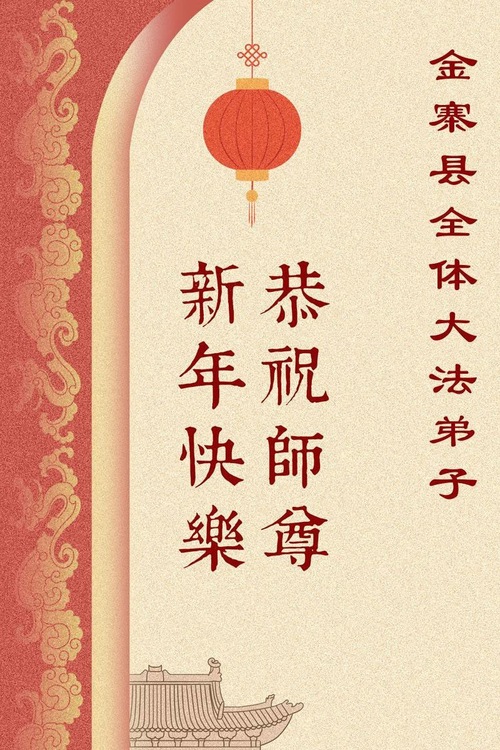 金寨县全体大法弟子
恭祝師尊
新年快樂